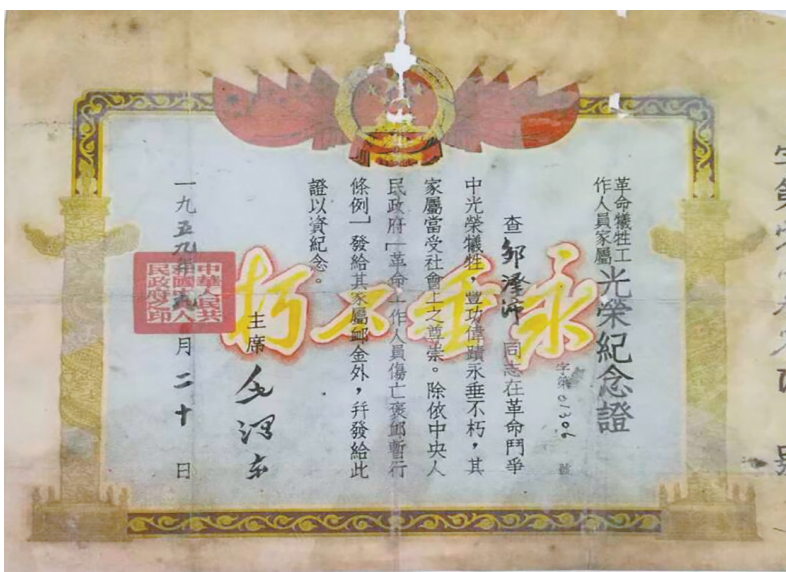 革命犧牲工
作人員家屬
光榮紀念證
字第01306號
查鄒澤沛同志在革命鬥爭
中光榮犧牲,豐功偉蹟永垂不朽,其
家屬當受社會上之尊崇。除依中央人
民政府「革命工作人員傷亡褒卹暫行
條例」發給其家屬卹金外,幷發給此
證以資紀念。
主席 毛澤東
一九五九年九月二十日
永垂不朽
中華人民共
和國中央人
民政府之印